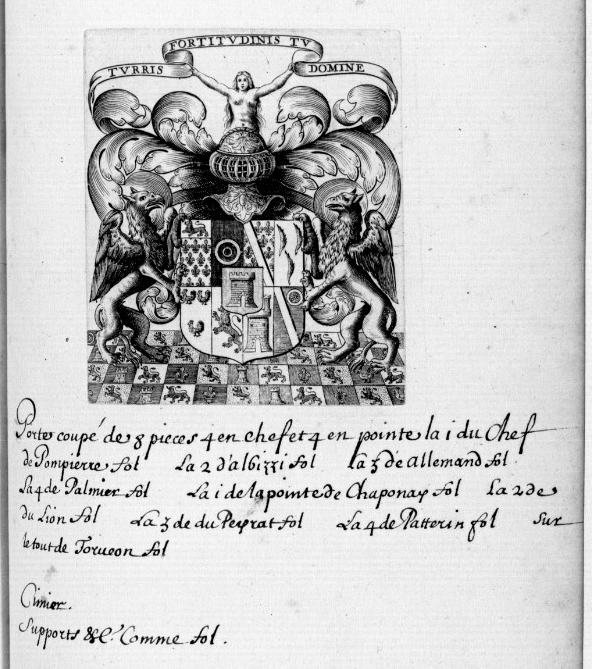 FORTITVDINIS TV
TVRRIS DOMINE
Porte coupé de 8 pieces 4 en chef et 4 en pointe la i du Chef
de Pompierre fol La 2 d'albizzi fol La 3 de Allemand fol
La 4 de Palmier fol La i de la pointe de Chaponay fol La 2 de
du Lion fol La 3 de du Peyrat fol La 4 de Patterin fol Sur
le tout de Torveon fol
Cimier.
Supports &c. Comme fol.